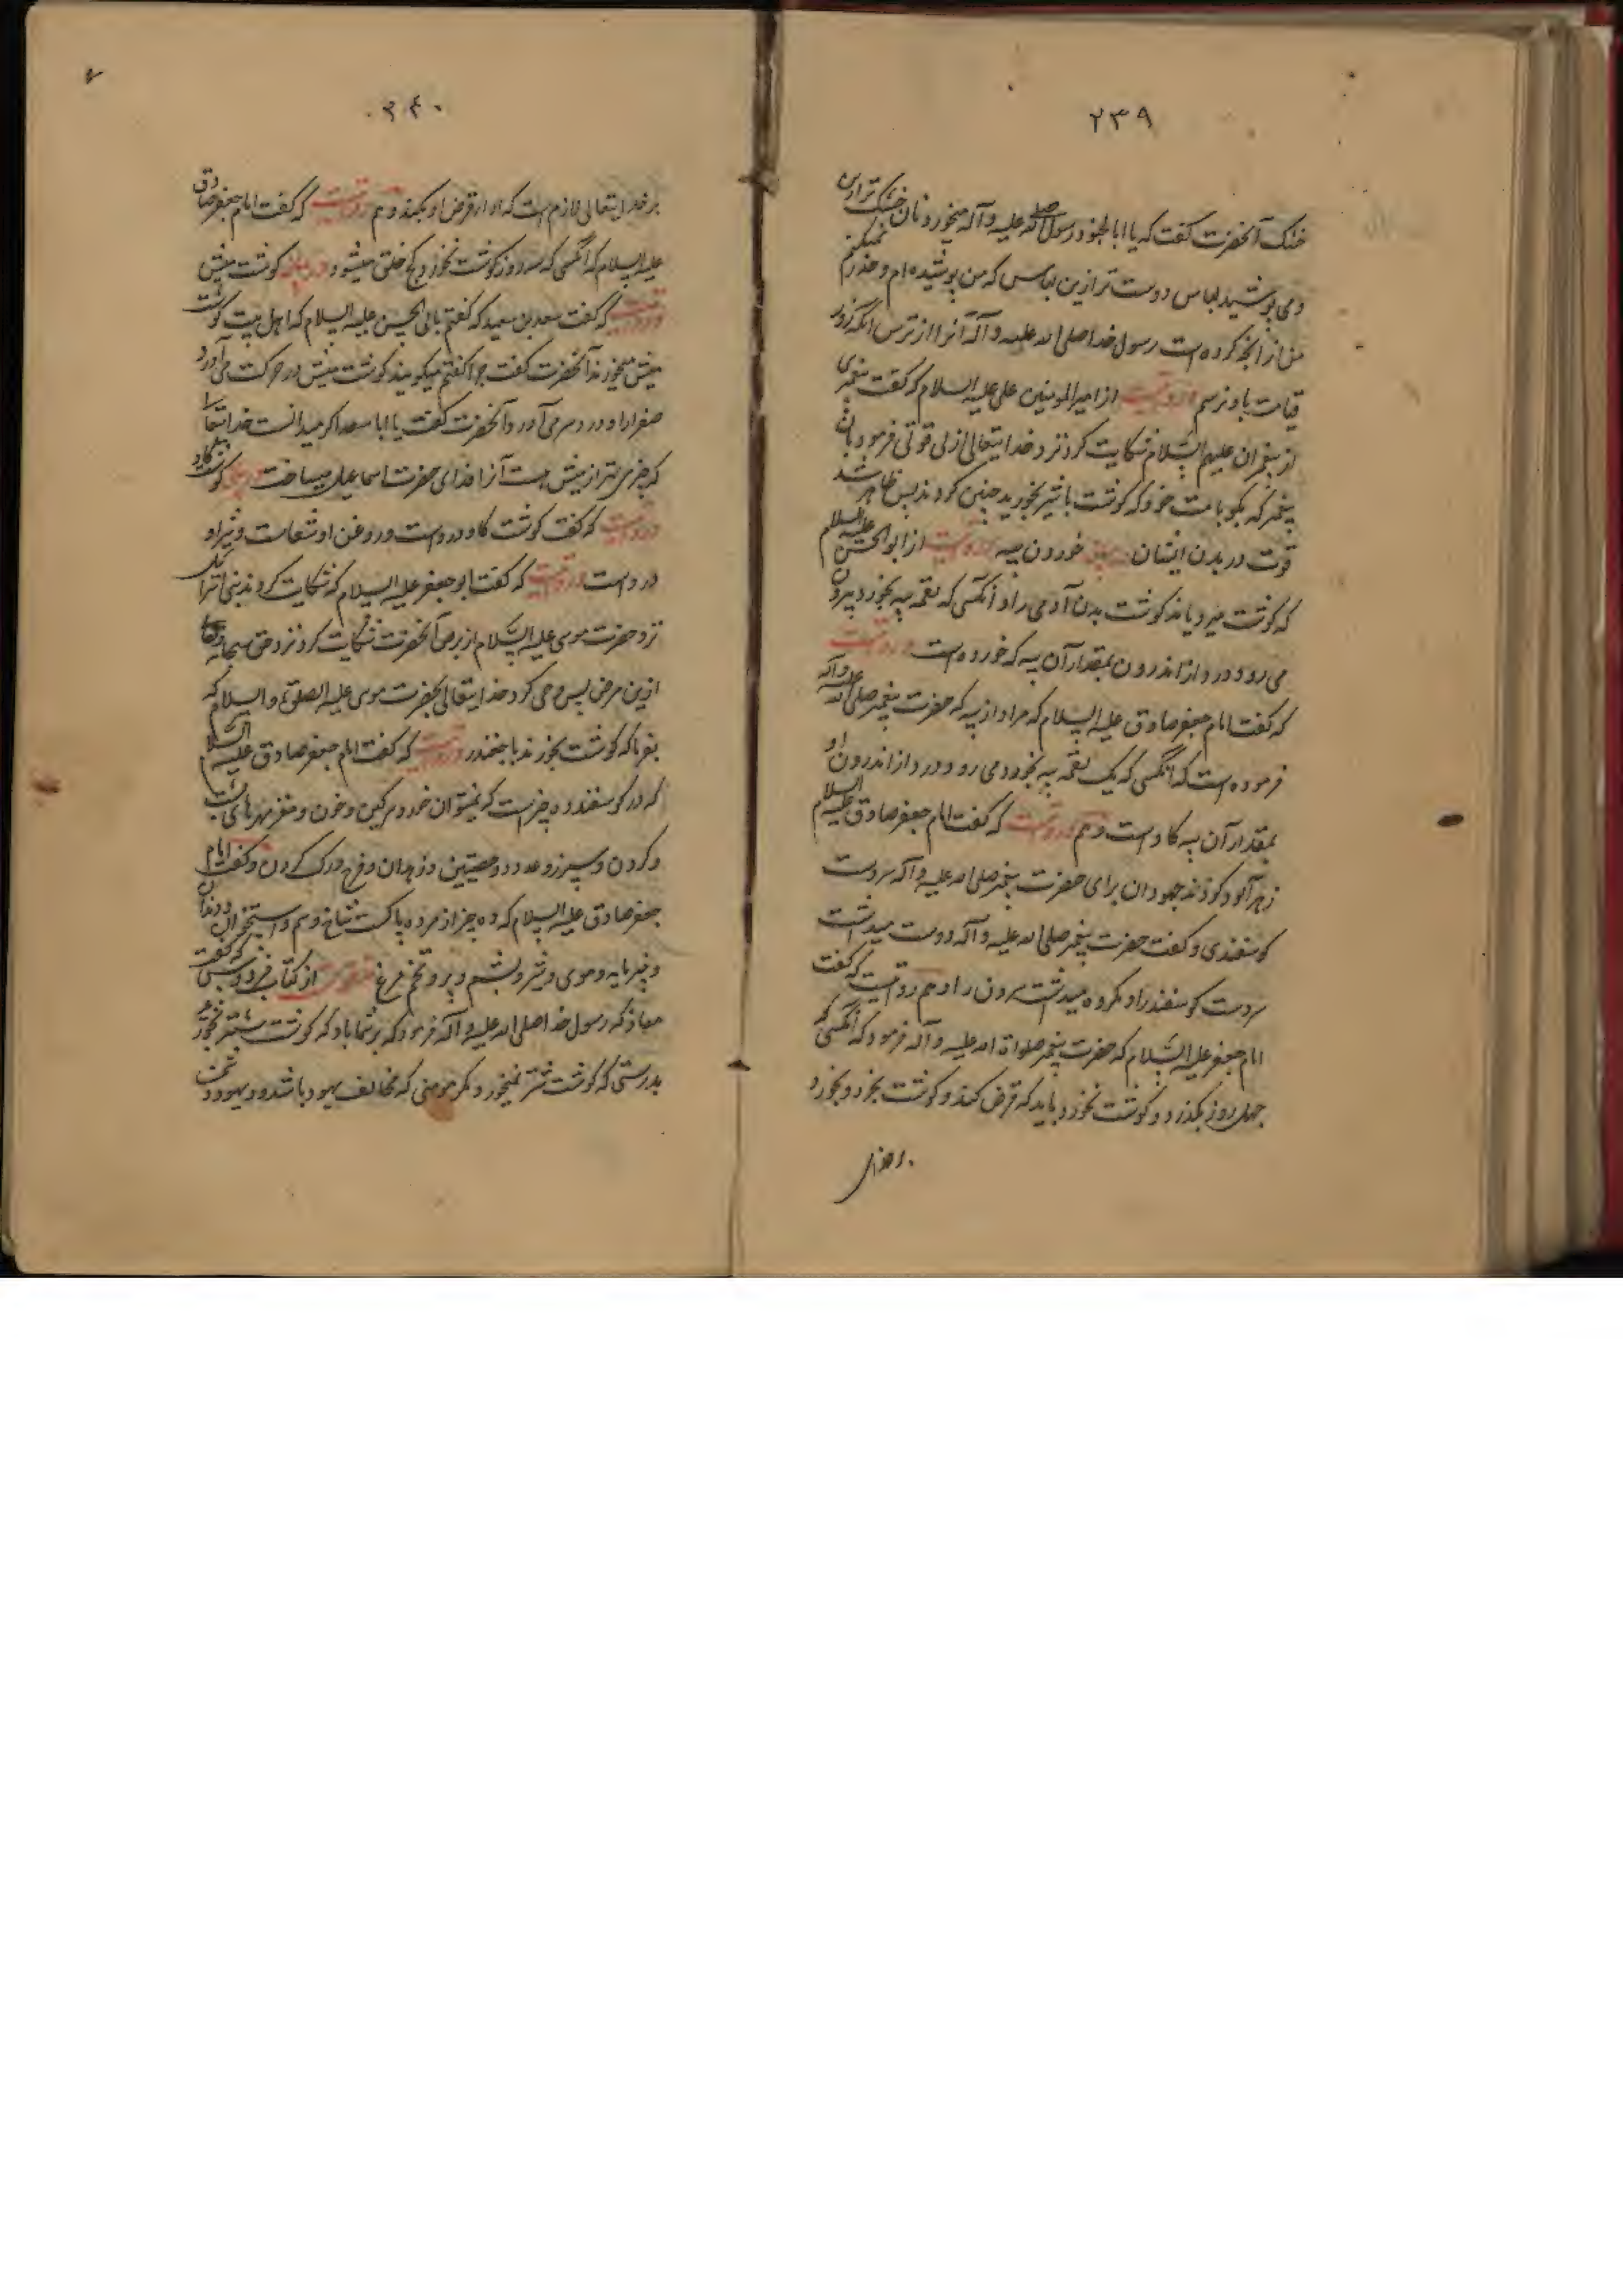 ۲۳۹
خنک آنحضرت گفت که یا ابا الجنود رسول صلی الله علیه و آله میخورد نان خشک تر ازین
و می پوشید لباس درشت تر ازین لباس که من پوشیده ام و حذر نمیکنم
من از آنچه کرده است رسول خدا صلی الله علیه و آله آنرا از ترس آنکه روز
قیامت باو نرسم و رویست از امیر المومنین علی علیه السلام که گفت پیغمبری
از پیغمبران علیهم السلام شکایت کرد نزد خدایتعالی از بی قوتی فرمود بان
پیغمبر که بگو بامت خود که گوشت با شیر بخورید چنین کردند پس ظاهر شد
قوت در بدن ایشان خوردن پیه رویست از ابو الحسن علیه السلام
که گوشت میرویاند گوشت بدن آدمی را و آنکسی که لقمه پیه بخورد بیرون
می رود درد از اندرون بمقدار آن پیه که خورده است و رویست
که گفت امام جعفر صادق علیه السلام که مراد از پیه که حضرت پیغمبر صلی الله علیه و آله
فرموده است که آنکسی که یک لقمه پیه بخورد می رود درد از اندرون او
بمقدار آن پیه گاو است و هم رویست که گفت امام جعفر صادق علیه السلام
زهر آلود کردند جهودان برای حضرت پیغمبر صلی الله علیه و آله سردست
گوسفندی و گفت حضرت پیغمبر صلی الله علیه و آله دوست میداشت
سردست گوسفند را و مکروه میداشت سرون را و هم رویست که گفت
امام جعفر علیه السلام که حضرت پیغمبر صلوات الله علیه و آله فرمود که آنکسی که
چهل روز بگذرد و گوشت نخورد باید که قرض کند و گوشت بخرد و بخورد
بر خدای
۲۴۰
بر خدایتعالی لازم است که ادا قرض او بکند و هم رویست که گفت امام جعفر صادق
علیه السلام که آنکسی که سه روز گوشت نخورد کج خلق میشود در بیان گوشت میش
و رویست که گفت سعد بن سعید که گفتم بابی الحسن علیه السلام که اهل بیت گوشت
میش نمیخورند آنحضرت گفت چرا گفتم میگویند گوشت میش در حرکت می آورد
صفرا را و درد سر می آورد آنحضرت گفت یا ابا سعد اگر میدانست خدایتعالی
که چیزی بهتر از میش هست آنرا فدای حضرت اسماعیل میساخت در بیان گوشت گاو
و رویست که گفت گوشت گاو درد است و روغن او شفاست و شیر او
درد است و رویست که گفت ابو جعفر علیه السلام که شکایت کردند بنی اسرائیل
نزد حضرت موسی علیه السلام از برص آنحضرت شکایت کرد نزد حق سبحانه و تعالی
ازین مرض پس وحی کرد خدایتعالی بحضرت موسی علیه الصلوة و السلام که
بفرما که گوشت بخورند با چغندر و رویست که گفت امام جعفر صادق علیه السلام
که در گوسفند ده چیز است که نمیتوان خورد سرگین و خون و مغز مهرهای پشت
و گردن و سپرز و غدد و خصیتین و زهدان و فرج و رگ گردن و گفت امام
جعفر صادق علیه السلام که ده چیز از مرده پاکست شاخ و سم و استخوان و دندان
و پنیر مایه و موی و شیر و پشم و پر و تخم مرغ از کتاب فردوس که گفت
معاذ که رسول خدا صلی الله علیه و آله فرمود که بر شما باد که گوشت شتر بخورید
بدرستی که گوشت شتر نمیخورد مگر مومنی که مخالف یهود باشد و یهود دشمن